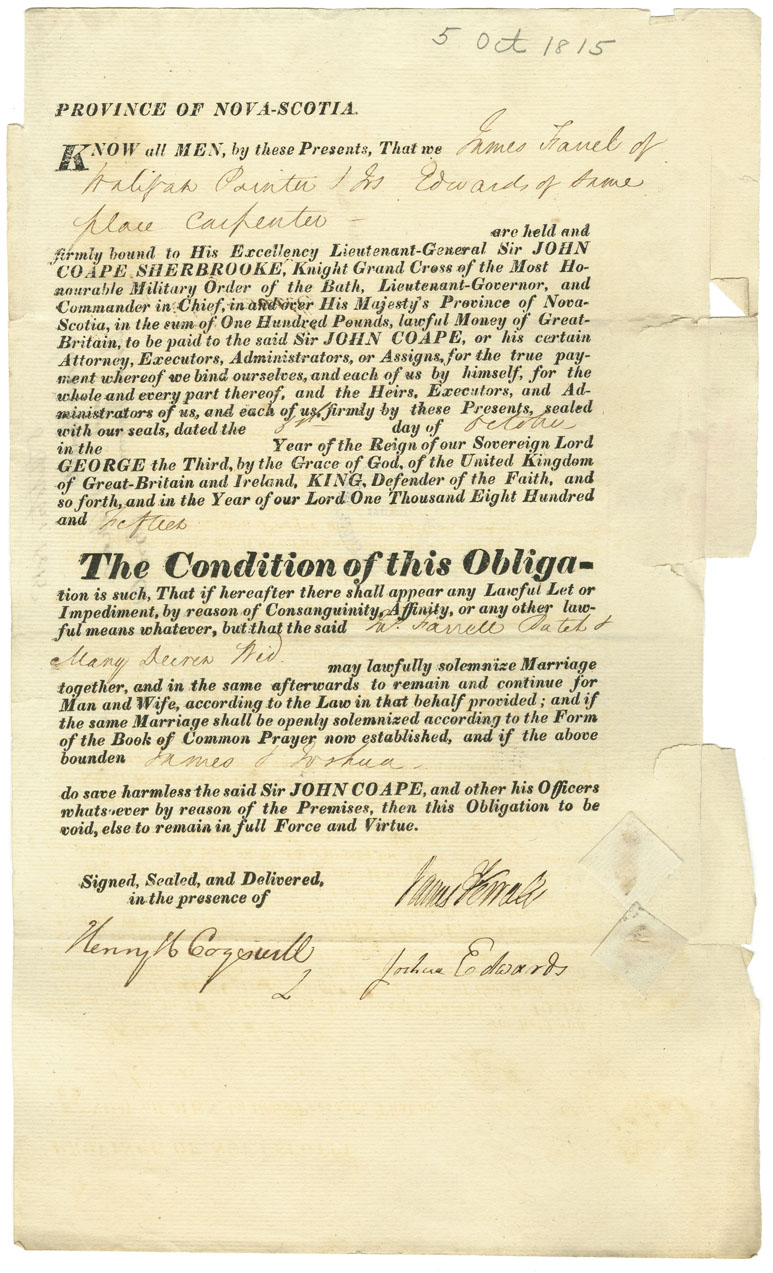 5 Oct 1815
PROVINCE OF NOVA-SCOTIA.
KNOW all MEN, by these Presents, That we James Farrel of
Halifax Painter & Js Edwards of same
place Carpenter —
are held and
firmly bound to His Excellency Lieutenant-General Sir JOHN
COAPE SHERBROOKE, Knight Grand Cross of the Most Ho-
nourable Military Order of the Bath, Lieutenant-Governor, and
Commander in Chief, in and over His Majesty's Province of Nova-
Scotia, in the sum of One Hundred Pounds, lawful Money of Great-
Britain, to be paid to the said Sir JOHN COAPE, or his certain
Attorney, Executors, Administrators, or Assigns, for the true pay-
ment whereof we bind ourselves, and each of us by himself, for the
whole and every part thereof, and the Heirs, Executors, and Ad-
ministrators of us, and each of us, firmly by these Presents, sealed
with our seals, dated the 5th day of October
in the Year of the Reign of our Sovereign Lord
GEORGE the Third, by the Grace of God, of the United Kingdom
of Great-Britain and Ireland, KING, Defender of the Faith, and
so forth, and in the Year of our Lord One Thousand Eight Hundred
and Fifteen
The Condition of this Obliga-
tion is such, That if hereafter there shall appear any Lawful Let or
Impediment, by reason of Consanguinity, Affinity, or any other law-
ful means whatever, but that the said Js. Farrell Batch &
Mary Wid.
may lawfully solemnize Marriage
together, and in the same afterwards to remain and continue for
Man and Wife, according to the Law in that behalf provided; and if
the same Marriage shall be openly solemnized according to the Form
of the Book of Common Prayer now established, and if the above
bounden James & Joshua
do save harmless the said Sir JOHN COAPE, and other his Officers
whatsoever by reason of the Premises, then this Obligation to be
void, else to remain in full Force and Virtue.
Signed, Sealed, and Delivered,
in the presence of
James Ferrall
Henry H Cogswell
Joshua Edwards